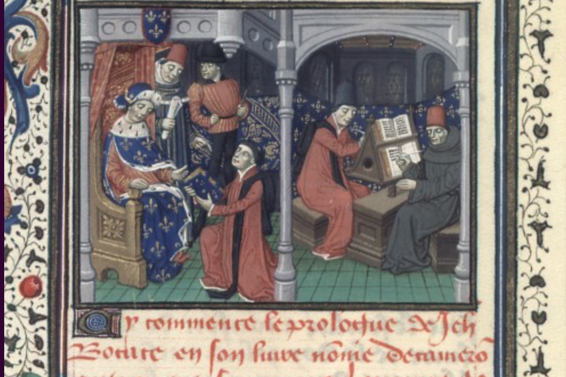 Cy commence le prologue de Jeh
Bocace en son livre nõme Decamerõ